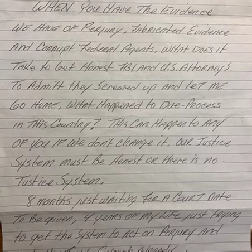 When You Have The Evidence
We Have of Perjury, Fabricated Evidence
And Corrupt Federal Agents, What Does it
Take to Get Honest FBI and U.S. Attorney's
To Admit they Screwed up and Let me
Go Home, What Happened to Due Process
in This Country? This Can Happen to Any
of You if We don't change it. Our Justice
System must Be Honest or there is no
Justice System.
8 months just waiting for a Court Date
To be given, 4 years of my life just trying
to get the System to Act on Perjury And